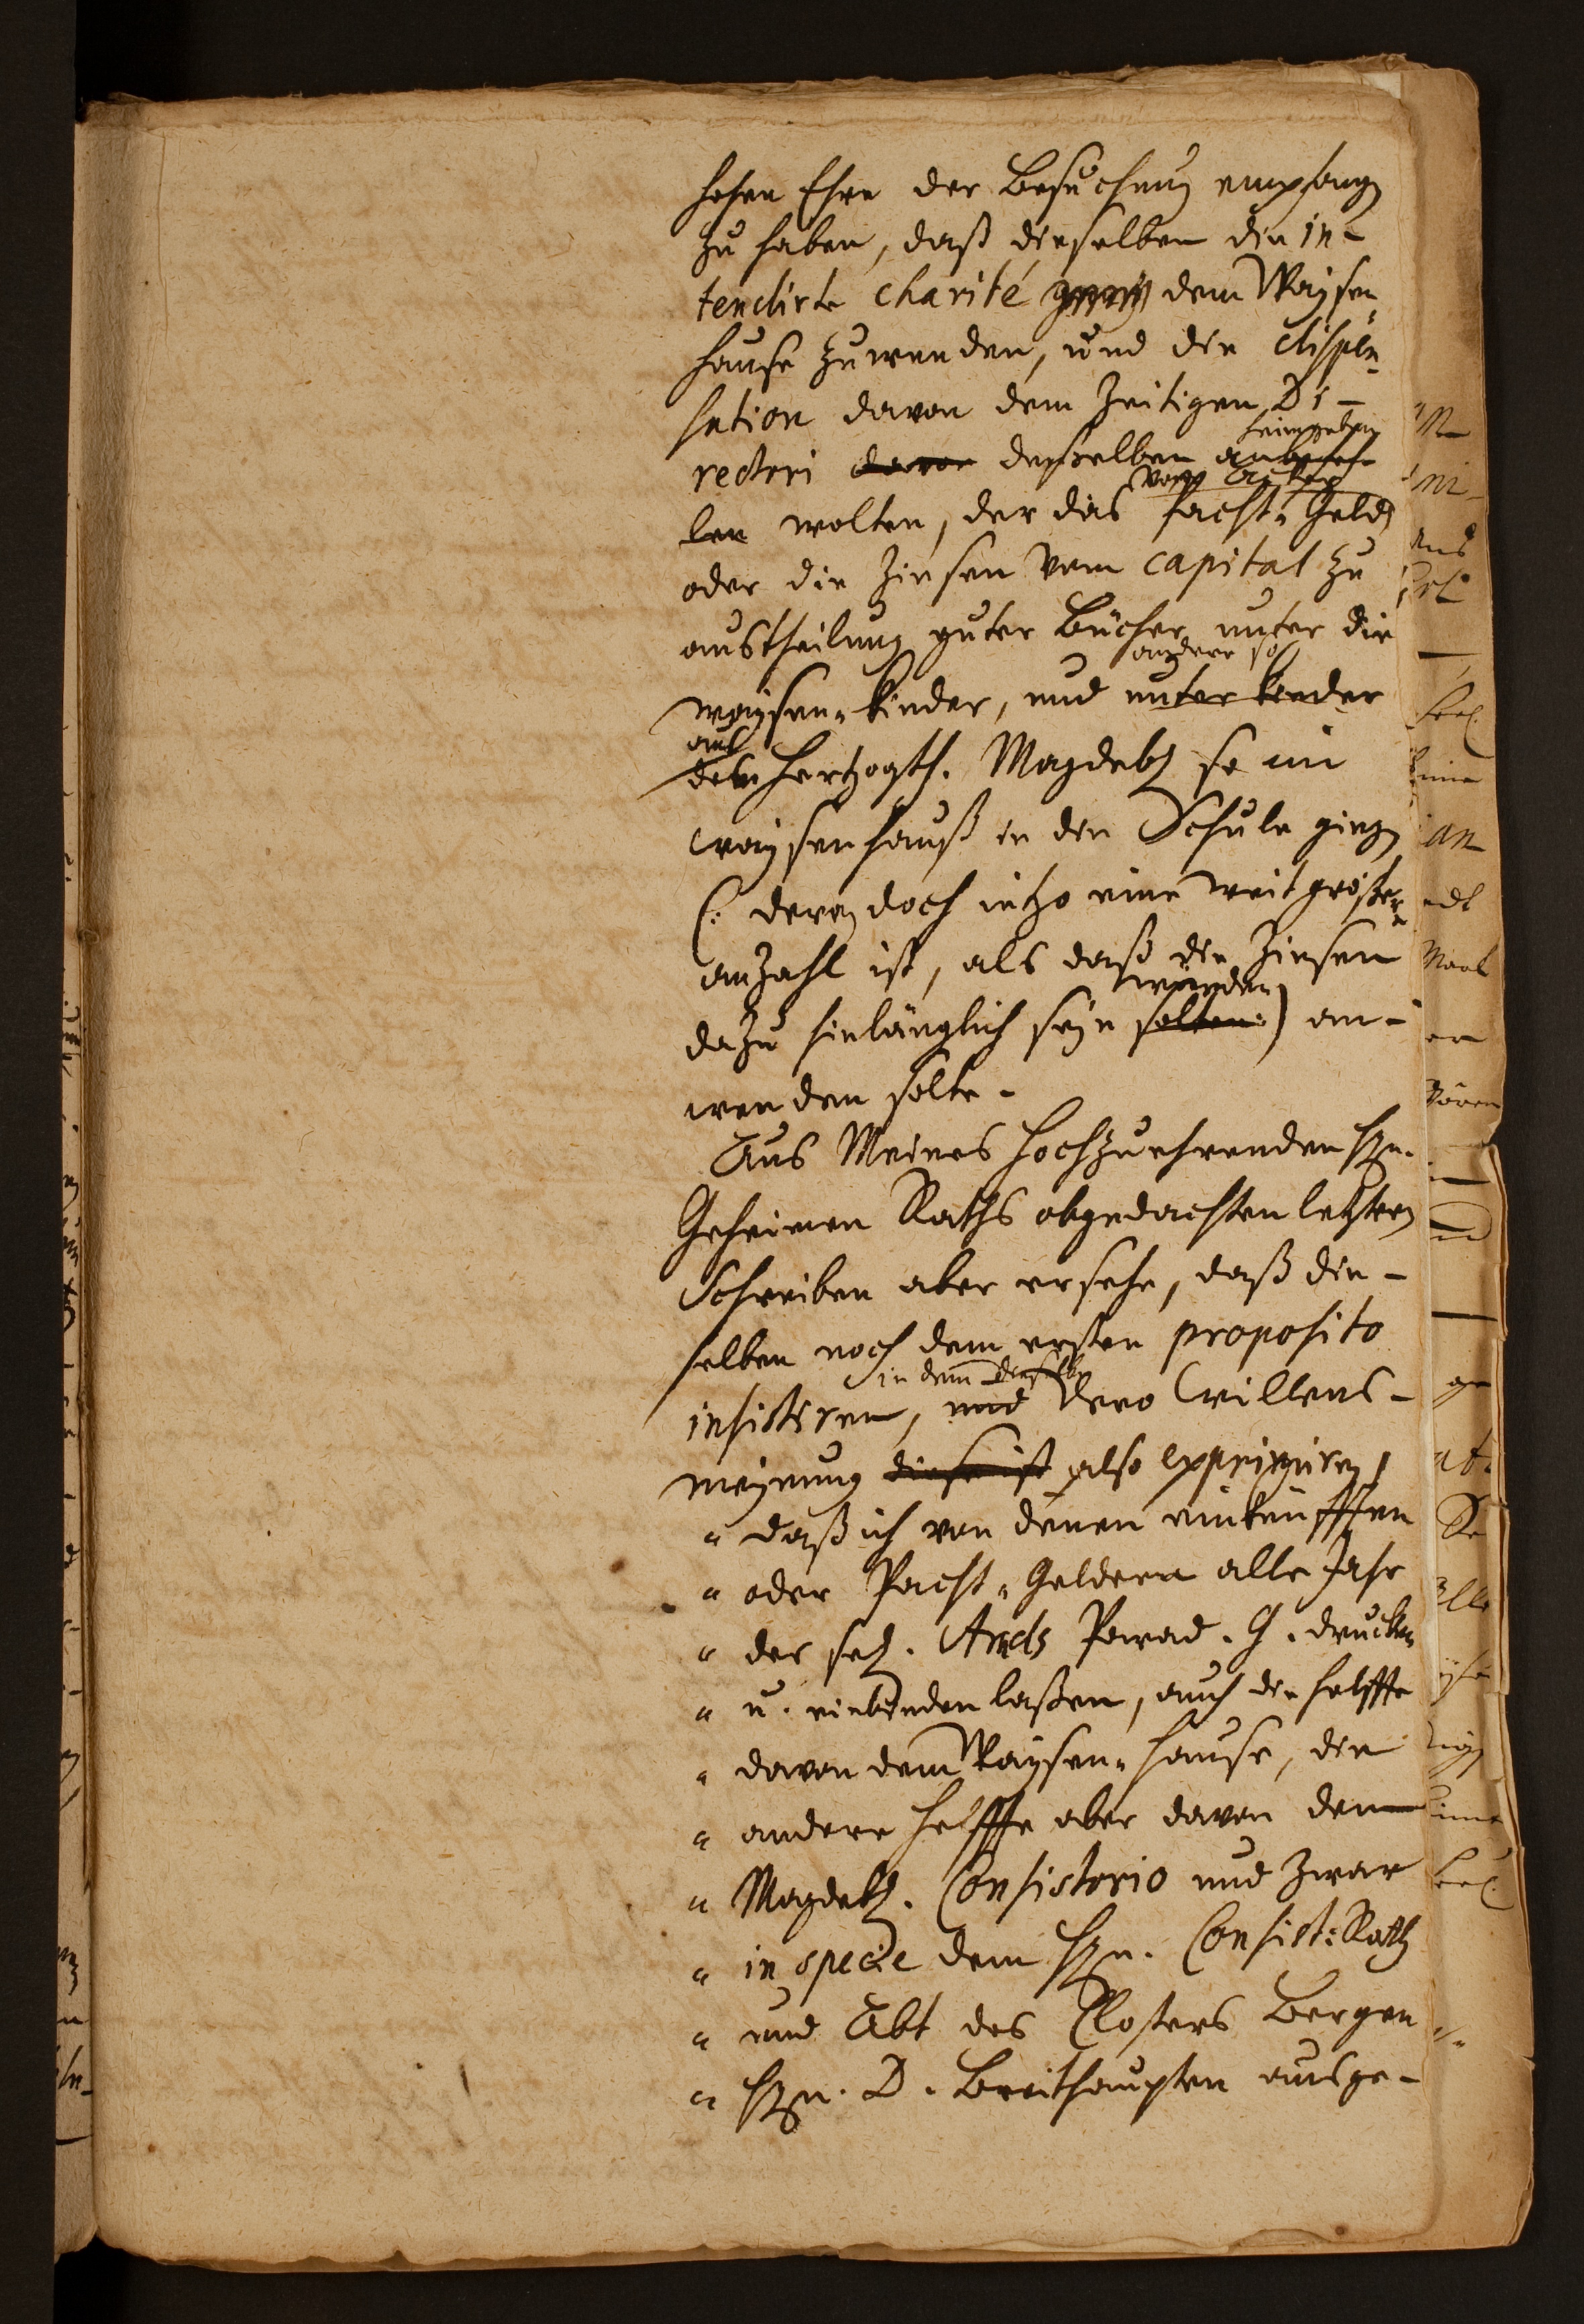 hohen Ehre der Besuchung empfangen
zu haben, daß dieselben die in-
tendirte charité dem Waysen-
hause zuwenden, und die dispen-
sation davon dem zeitigen Di-
heimgeben
rectori davon desselben anbefeh-
vom Acker
len wolten, der das Pacht-Geld
oder die Zinsen vom capital zu
austheilung guter Bücher unter die
andere so
waysen-kinder, und unter kinder
aus
dem Hertzogth. Magdeb. so im
waysenhauß in die Schule gingen
(: deren doch ietzo eine weit größere
anzahl ist, als daß die Zinsen
würden
dazu hinlänglich seyn solten :) an-
wenden solte.
Aus Meines Hochzuehrenden Hrn.
Geheimen Raths obgedachten letztern
Schreiben aber ersehe, daß die-
selben noch dem ersten proposito
in dem dieselbe
insistiren, und dero Willens-
meynung diese ist also exprimiren,
" daß ich von denen einkünfften
" oder Pacht-Geldern alle Jahr
" des sel. Arnds Parad. G. drucken
" u. einbinden laßen, auch die helffte
" davon dem Waysen-Hause, die
" andere Helffte aber davon dem
" Magdeb. Consistorio und zwar
" in specie dem Hrn. Consist: Rath
" und Abt des Closters Bergen
" Hrn. D. Breithaupten ausge-